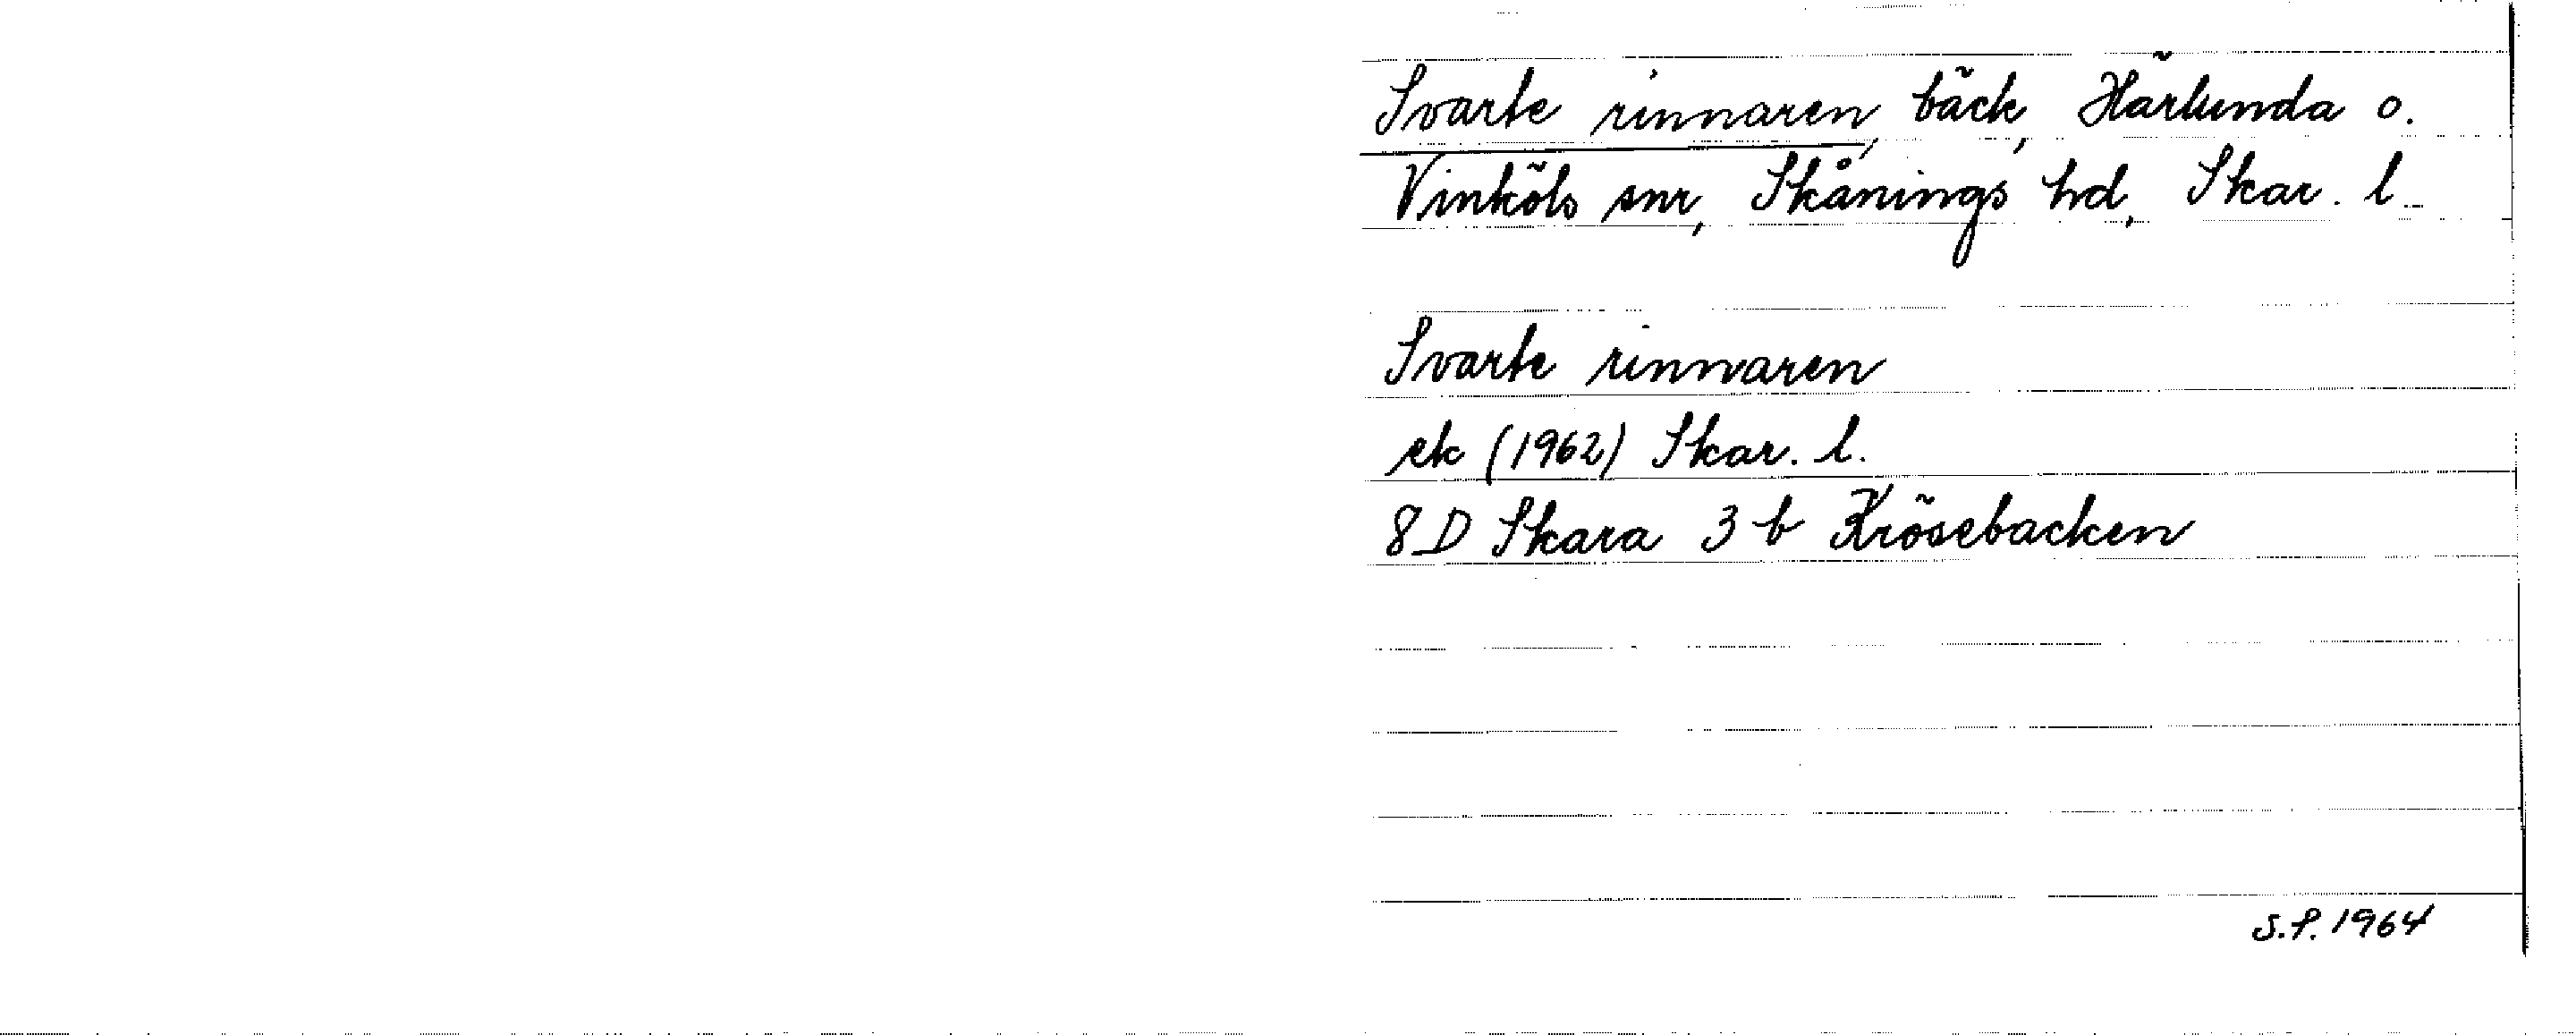 Svarte rinnaren, bäck, Härlunda o.
Vinköls snr, Skånings hd, Skar. l.
Svarte rinnaren
ek (1962) Skar. l.
8D Skara 3 b Krösebacken
S.P. 1964